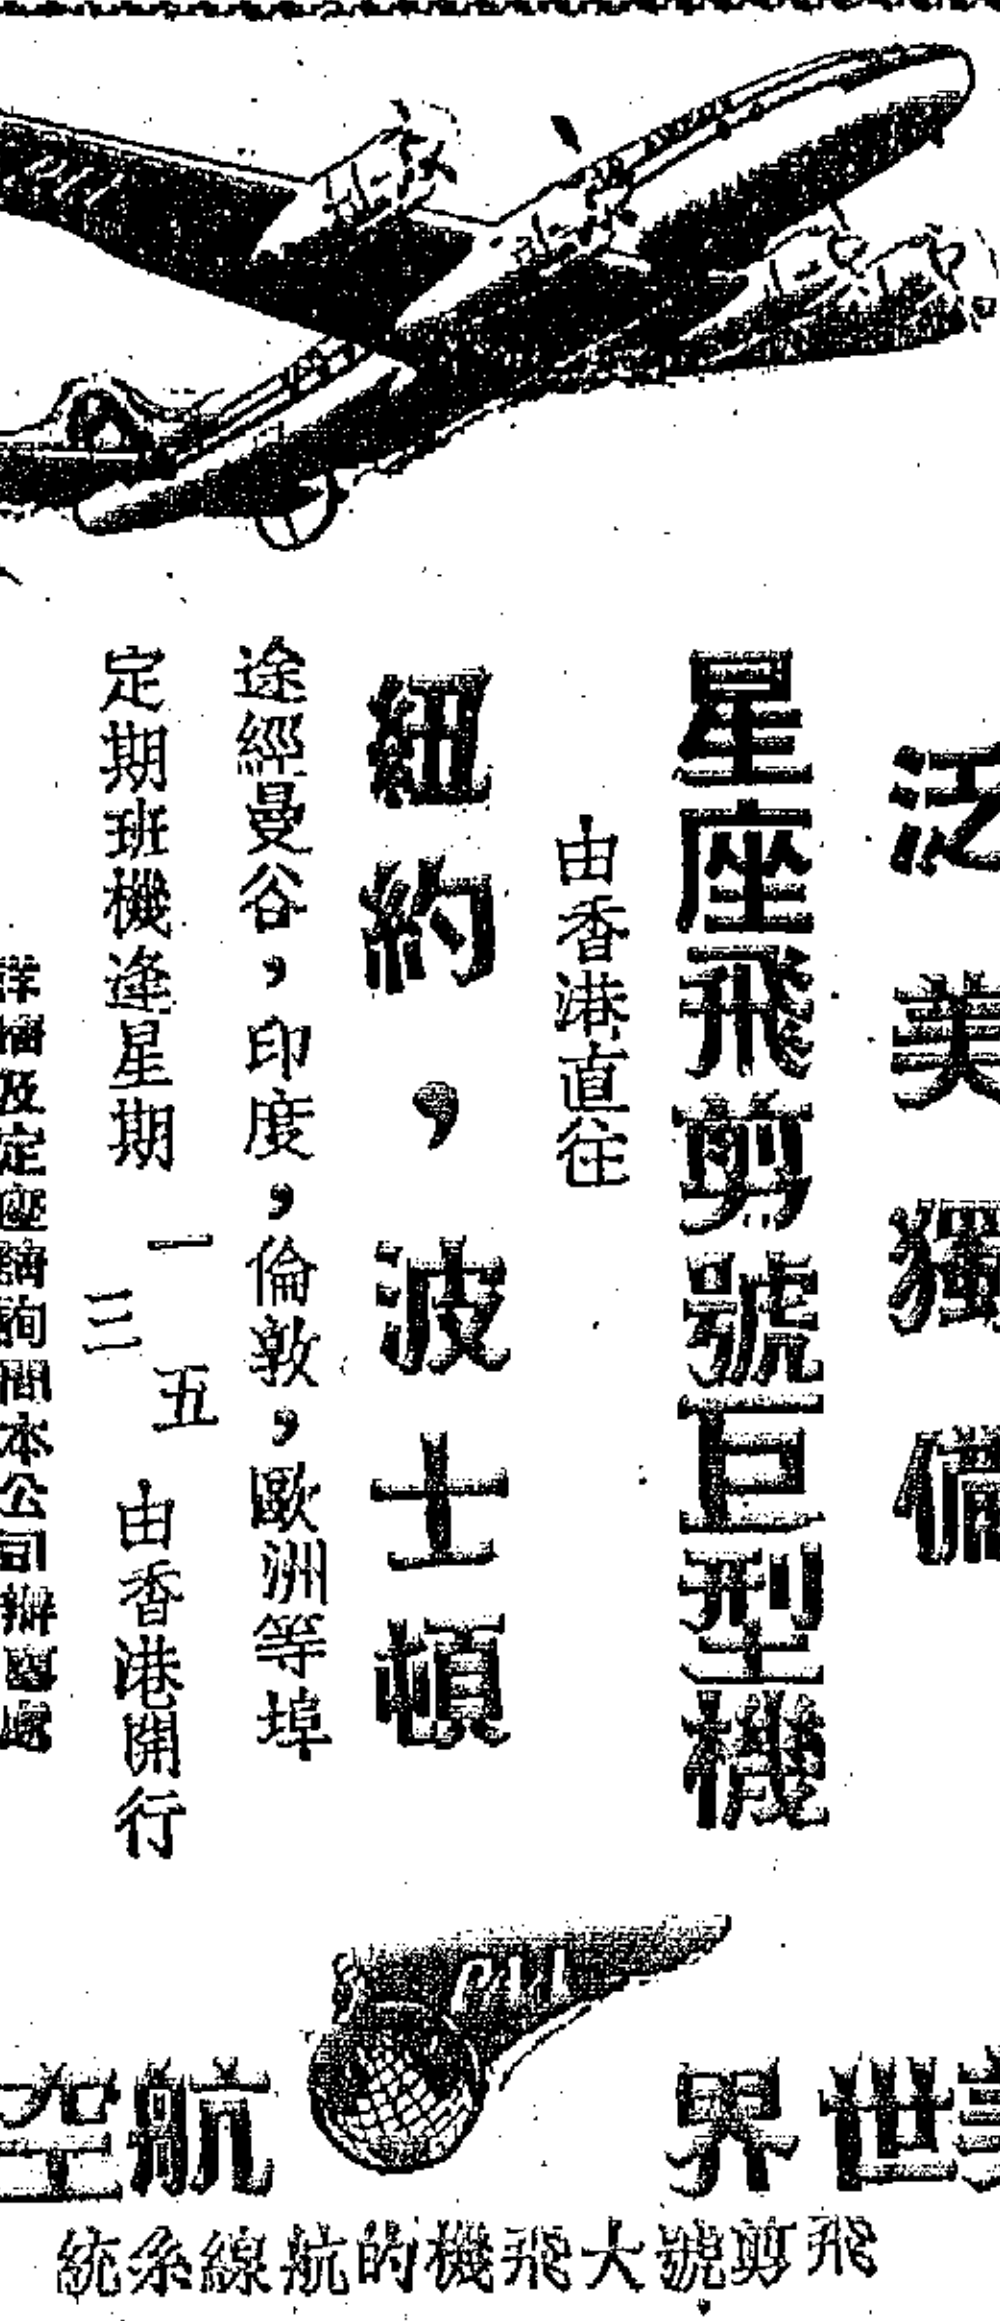 泛美獨備
星座飛剪號巨型機
由香港直往
紐約，波士頓
途經曼谷，印度，倫敦，歐洲等埠
定期班機逢星期一三五由香港開行
詳情及定座請詢問本公司辦事處
PAA
美世界航空
飛剪號大飛機的航線系統